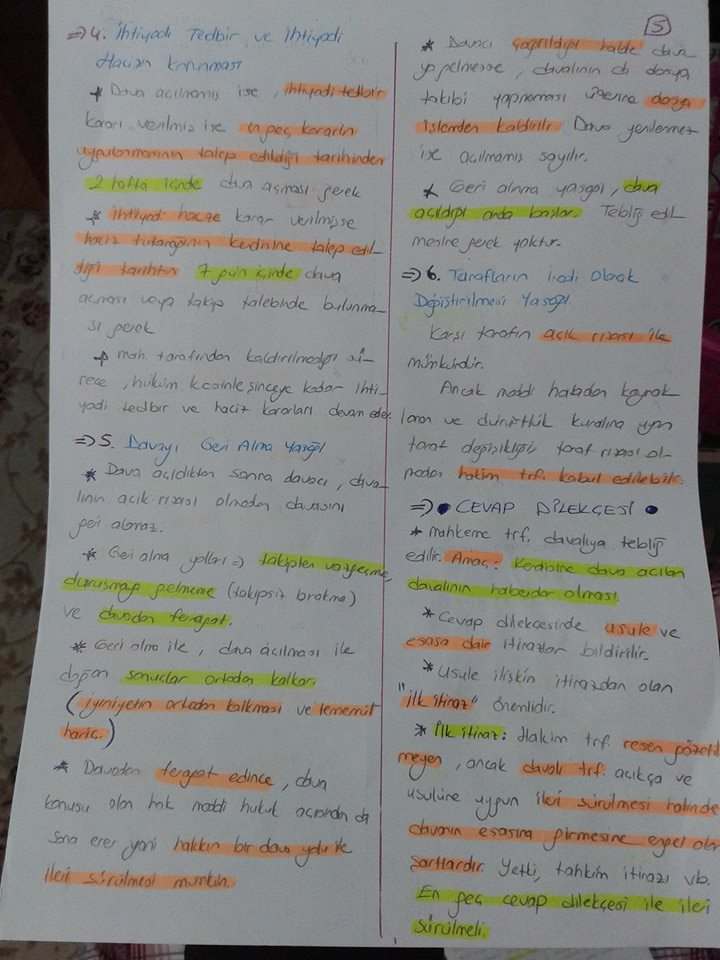 => 4. İhtiyadi Tedbir ve ihtiyadi
Haczin korunması
* Dava açılmamış ise, ihtiyadi tedbir
kararı verilmiş ise en geç kararın
uygulanmasının talep edildiği tarihinden
2 hafta içinde dava açması gerek
* ihtiyadi hacze karar verilmişse
haciz tutanağının kendinine talep edil-
diği tarihten 7 gün içinde dava
açması veya takip talebinde bulunma-
sı gerek
* mah. tarafından kaldırılmadığı sü-
rece, hüküm kesinleşinceye kadar ihti-
yadi tedbir ve haciz kararları devam eder.
=> 5. Davayı Geri Alma Yasağı
* Dava açıldıktan sonra davacı, dava-
lının açık rızası olmadan davasını
geri alamaz.
* Geri alma yolları => takipten vazgeçme,
duruşmaya gelmeme (takipsiz bırakma)
ve davadan feragat.
* Geri alma ile, dava açılması ile
doğan sonuçlar ortadan kalkar.
(iyiniyetin ortadan kalkması ve temerrüt
hariç.)
* Davadan feragat edince, dava
konusu olan hak maddi hukuk açısından da
sona erer yani hakkın bir dava yolu ile
ileri sürülmesi mümkün.
5
* Davacı çağrıldığı halde dava
ya gelmezse, davalının da dosya
takibi yapmaması üzerine dosya
işlemden kaldırılır. Dava yenilenmez
ise açılmamış sayılır.
* Geri alma yasağı, dava
açıldığı anda başlar. Tebliğ edil-
mesine gerek yoktur.
=> 6. Tarafların İradi Olarak
Değiştirilmesi Yasağı
Karşı tarafın açık rızası ile
mümkündür.
Ancak maddi hatadan kaynak
lanan ve dürüstlük kuralına uyan
taraf değişikliği taraf rızası ol-
madan hakim trf. kabul edilebilir.
=> • CEVAP DİLEKÇESİ •
* Mahkeme trf. davalıya tebliğ
edilir. Amaç: Kendisine dava açılan
davalının haberdar olması.
* Cevap dilekçesinde usule ve
esasa dair itirazlar bildirilir.
* Usule ilişkin itirazdan olan
"ilk itiraz" önemlidir.
* İlk itiraz: Hakim trf. resen gözetil
meyen, ancak davalı trf. açıkça ve
usulüne uygun ileri sürülmesi halinde
davanın esasına girmesine engel olan
şartlardır. Yetki, tahkim itirazı vb.
En geç cevap dilekçesi ile ileri
sürülmeli.